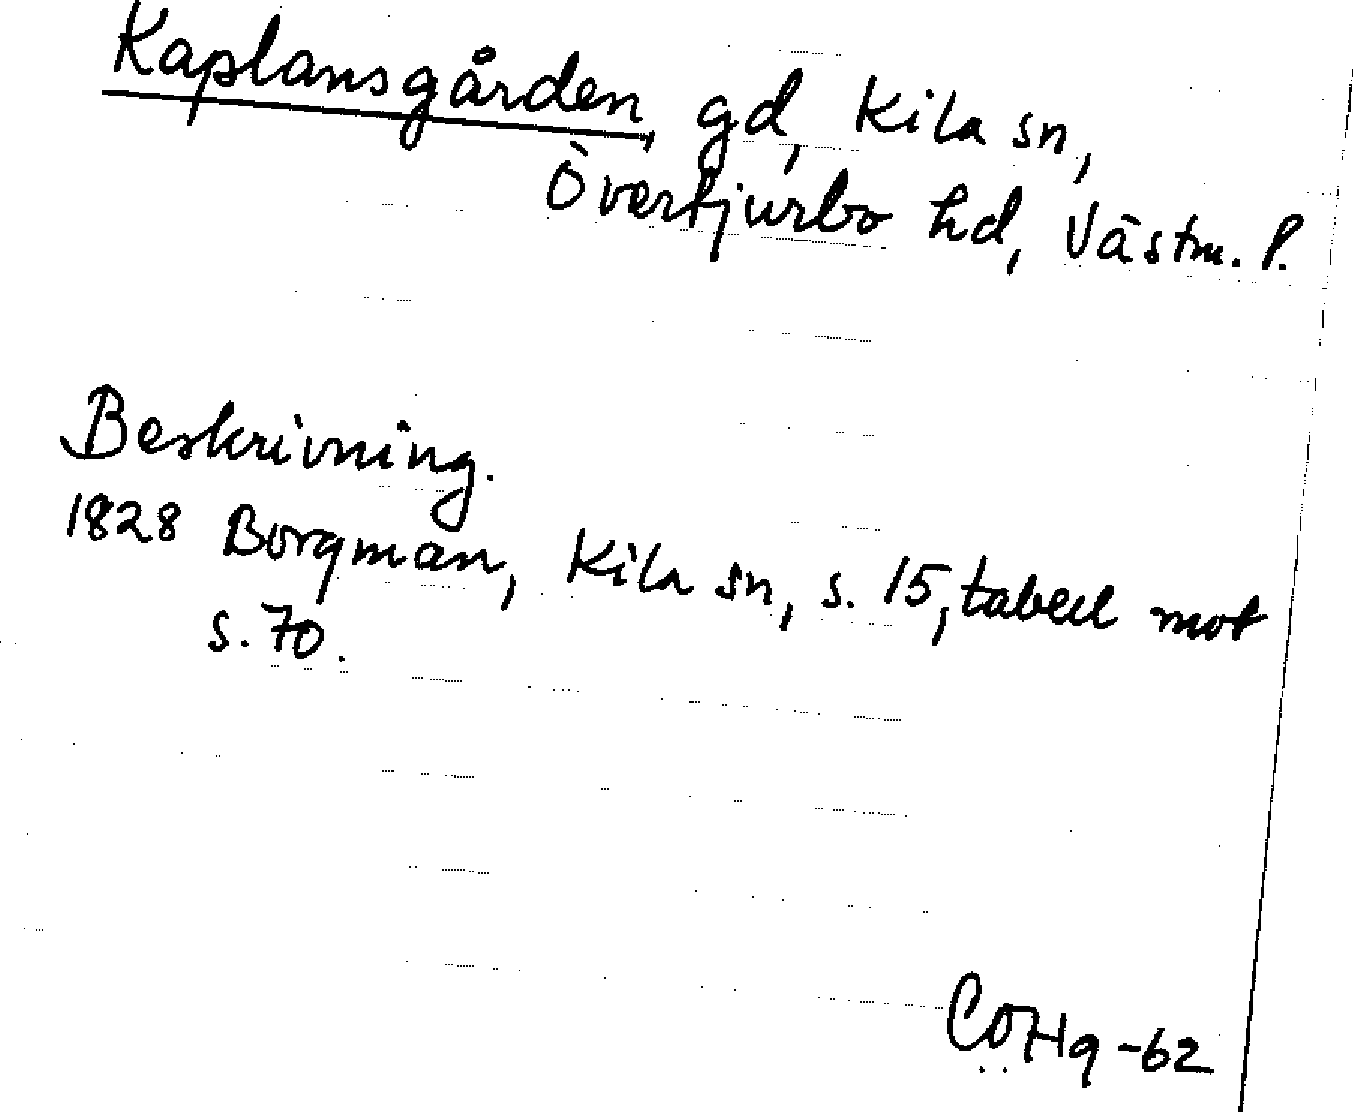 Kaplansgården, gd, Kila sn,
Övertjurbo hd, Västm. l.
Beskrivning.
1828 Borgman, Kila sn, s. 15, tabell mot
s. 70.
CÖHg -62